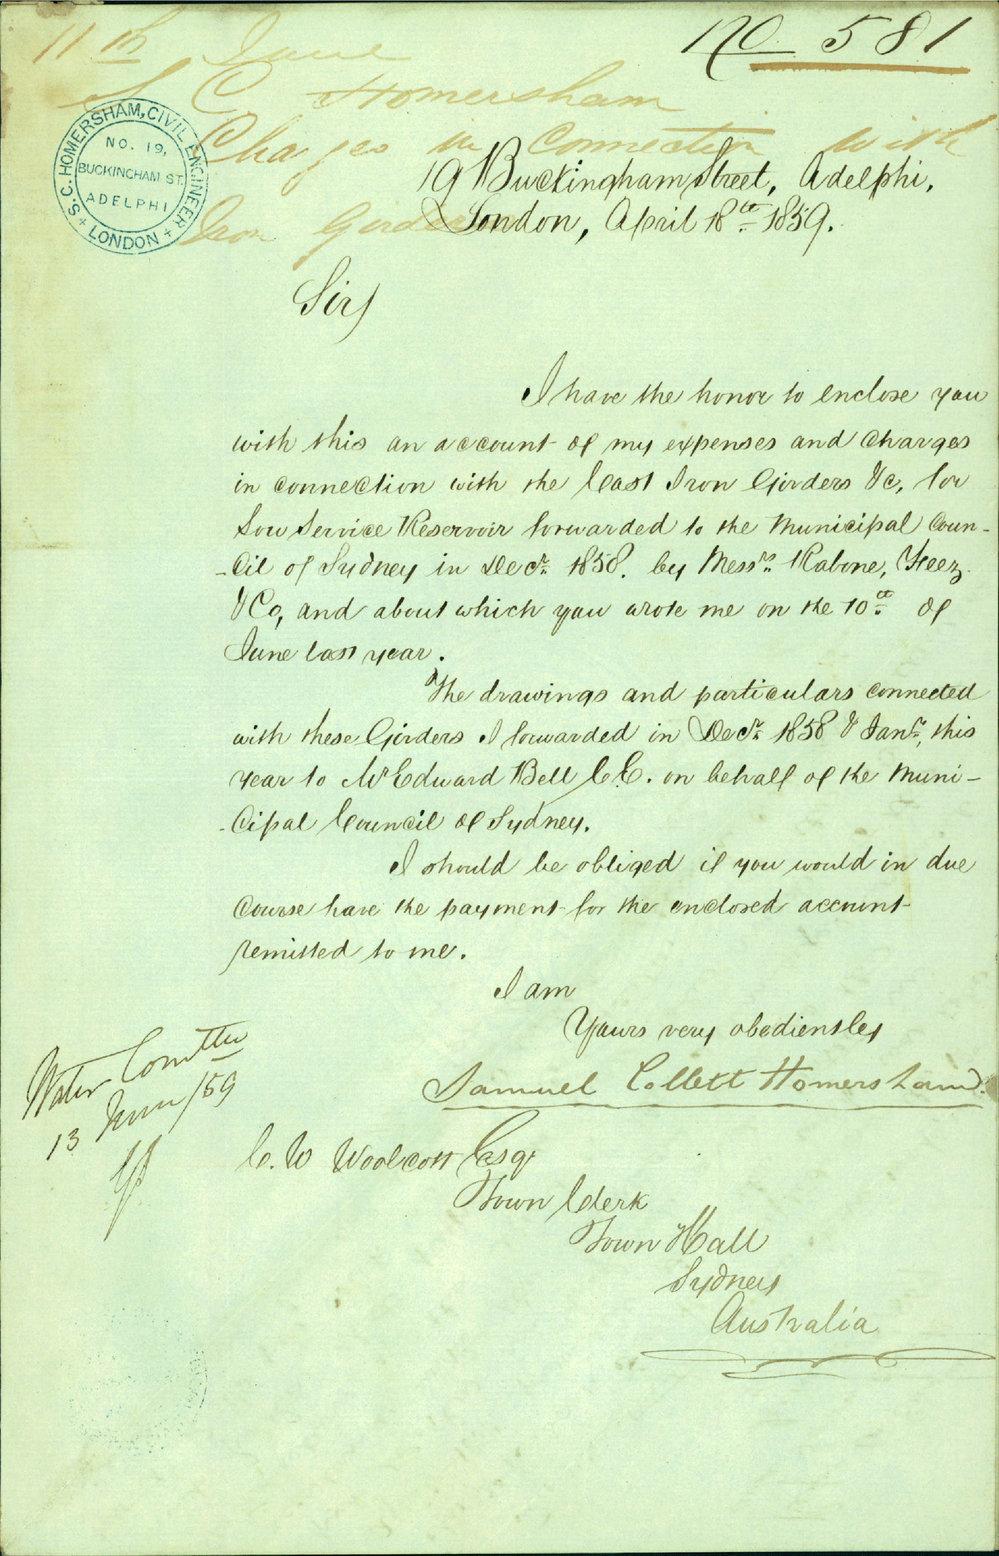 No 581
11th June
S C Homersham
Charges in connection with
Iron Girders
S. C. HOMERSHAM, CIVIL ENGINEER
LONDON
NO. 19,
BUCKINGHAM ST.
ADELPHI
19 Buckingham Street, Adelphi,
London, April 18th 1859.
Sir,
I have the honor to enclose you
with this an account of my expenses and charges
in connection with the Cast Iron Girders &c, for
Low Service Reservoir forwarded to the Municipal Coun-
-cil of Sydney in Decr. 1858. by Messrs. Rabone, Feez
& Co, and about which you wrote me on the 10th of
June last year.
The drawings and particulars connected
with these Girders I forwarded in Decr. 1858 & Janr, this
year to Mr Edward Bell C.E. on behalf of the Muni-
-cipal Council of Sydney.
I should be obliged if you would in due
course have the payment for the enclosed account
remitted to me.
I am
Yours very obediently
Samuel Collett Homersham.
Water Comttee
13 June/59
C. W Woolcott Esqr
Town Clerk
Town Hall
Sydney
Australia